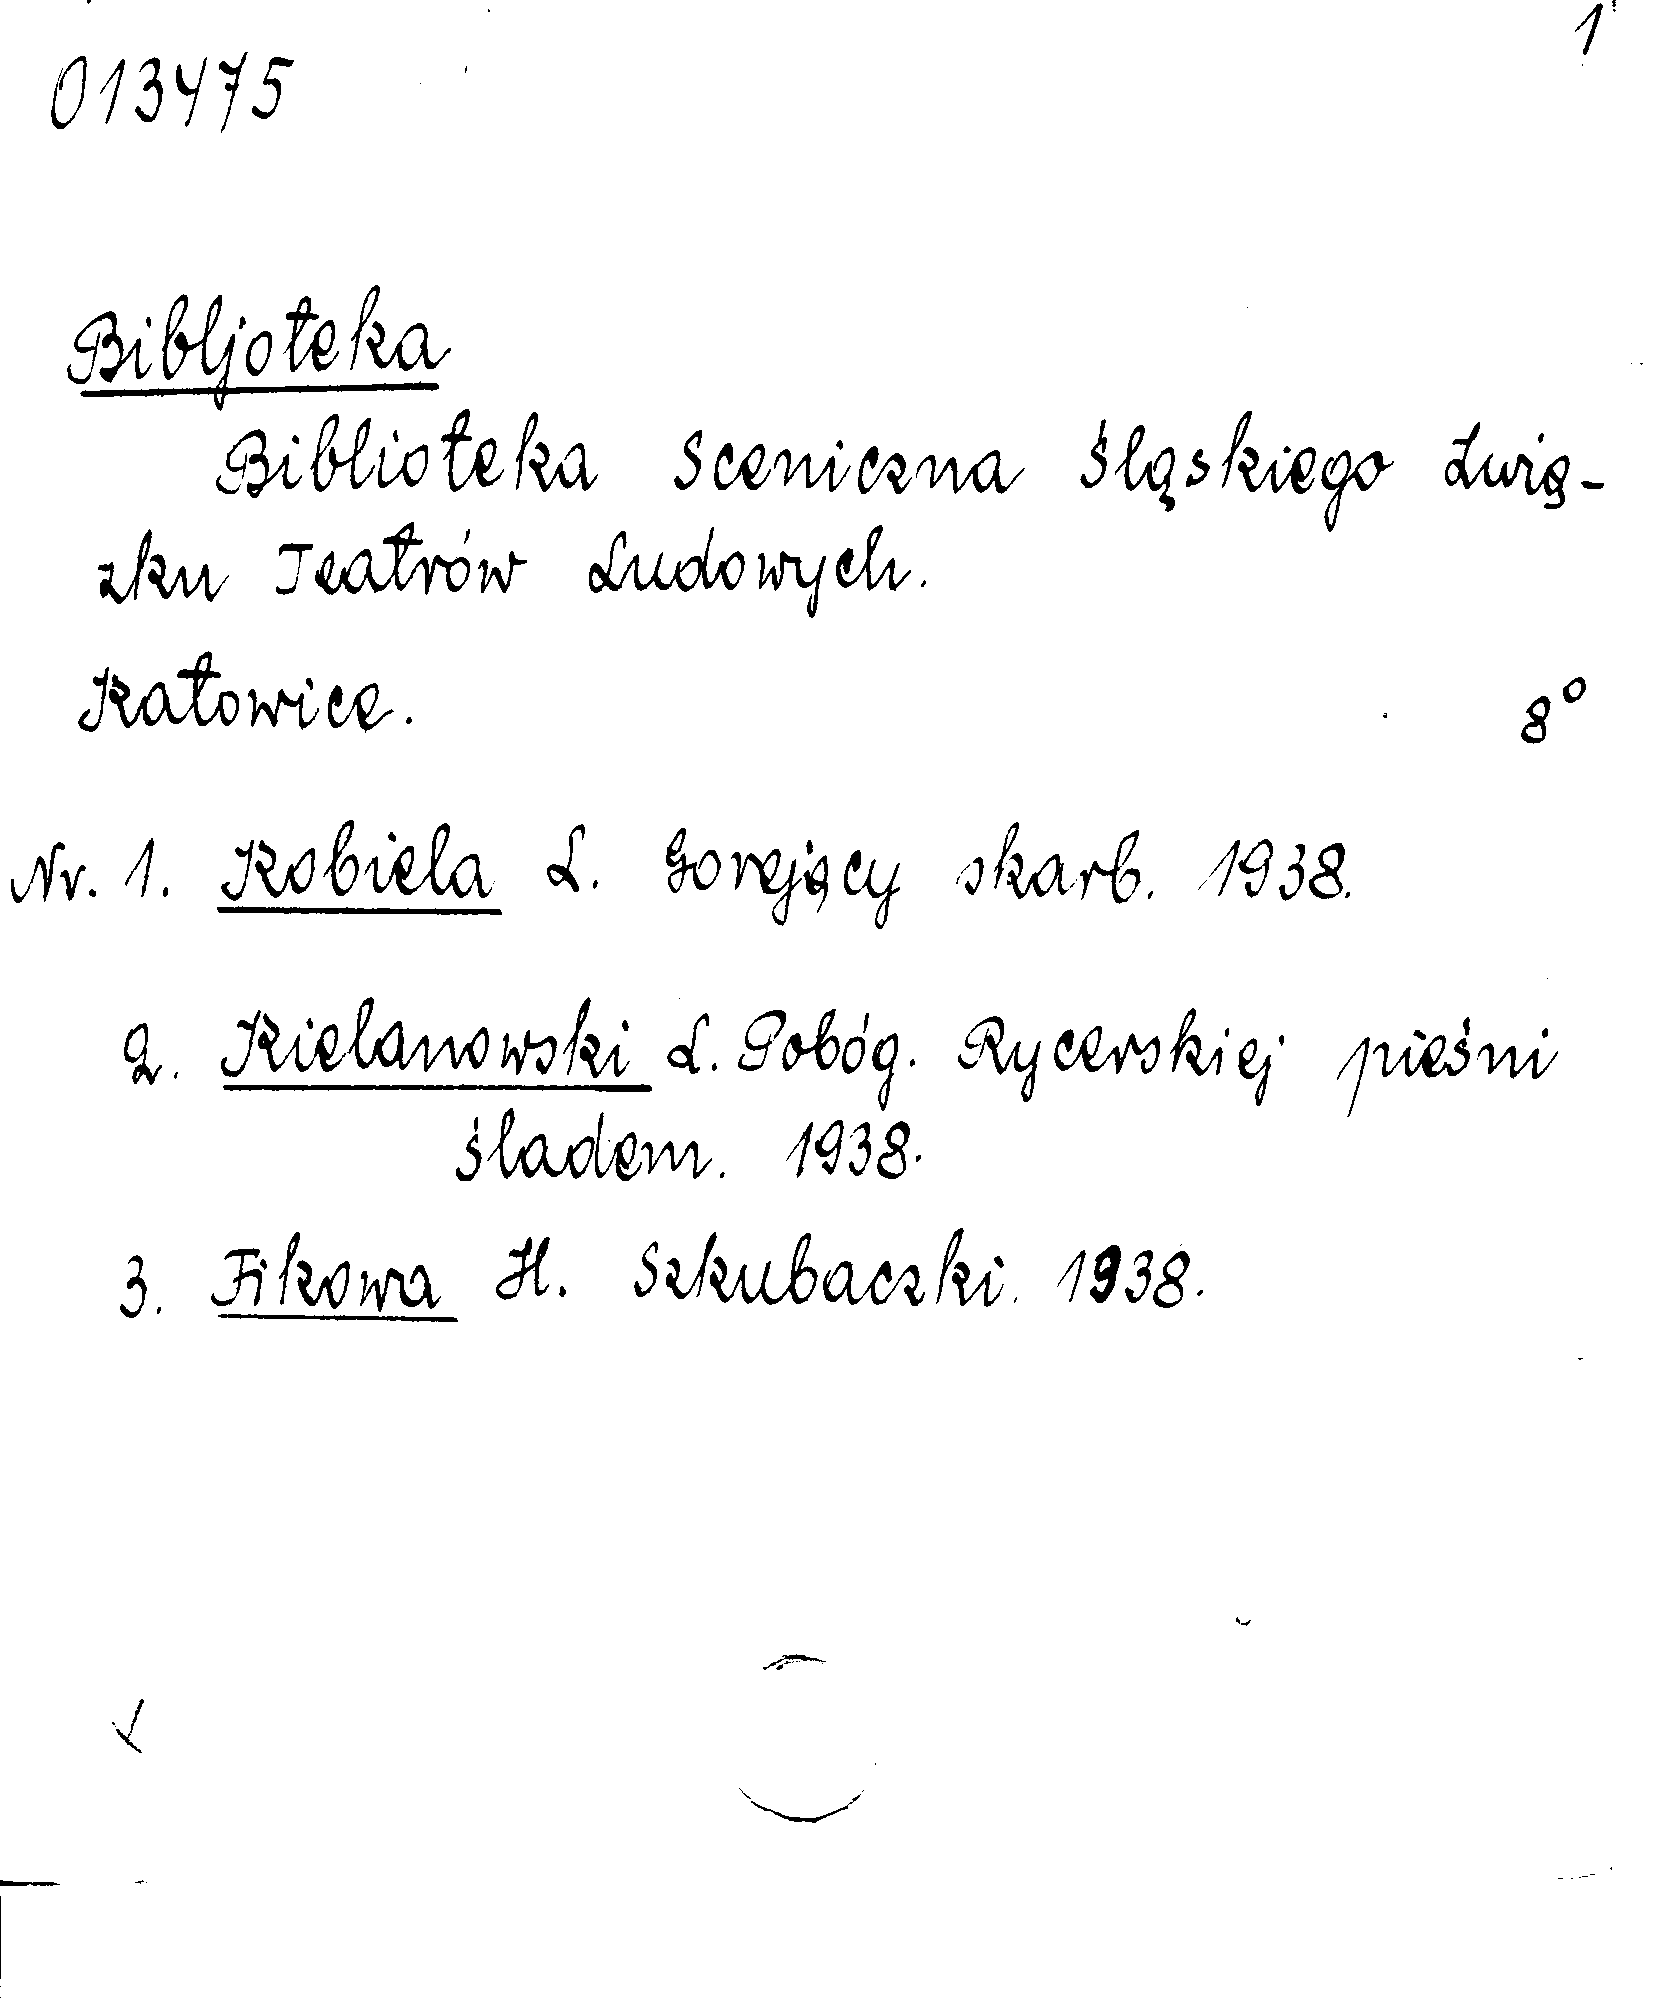 1
013475
Bibljoteka
Biblioteka Sceniczna Śląskiego Zwią-
zku Teatrów Ludowych.
Katowice. 8°
Nr. 1. Kobiela L. Gorejący skarb. 1938.
2. Kielanowski L. Pobóg. Rycerskiej pieśni
śladem. 1938.
3. Fikowa H. Szkubaczki. 1938.